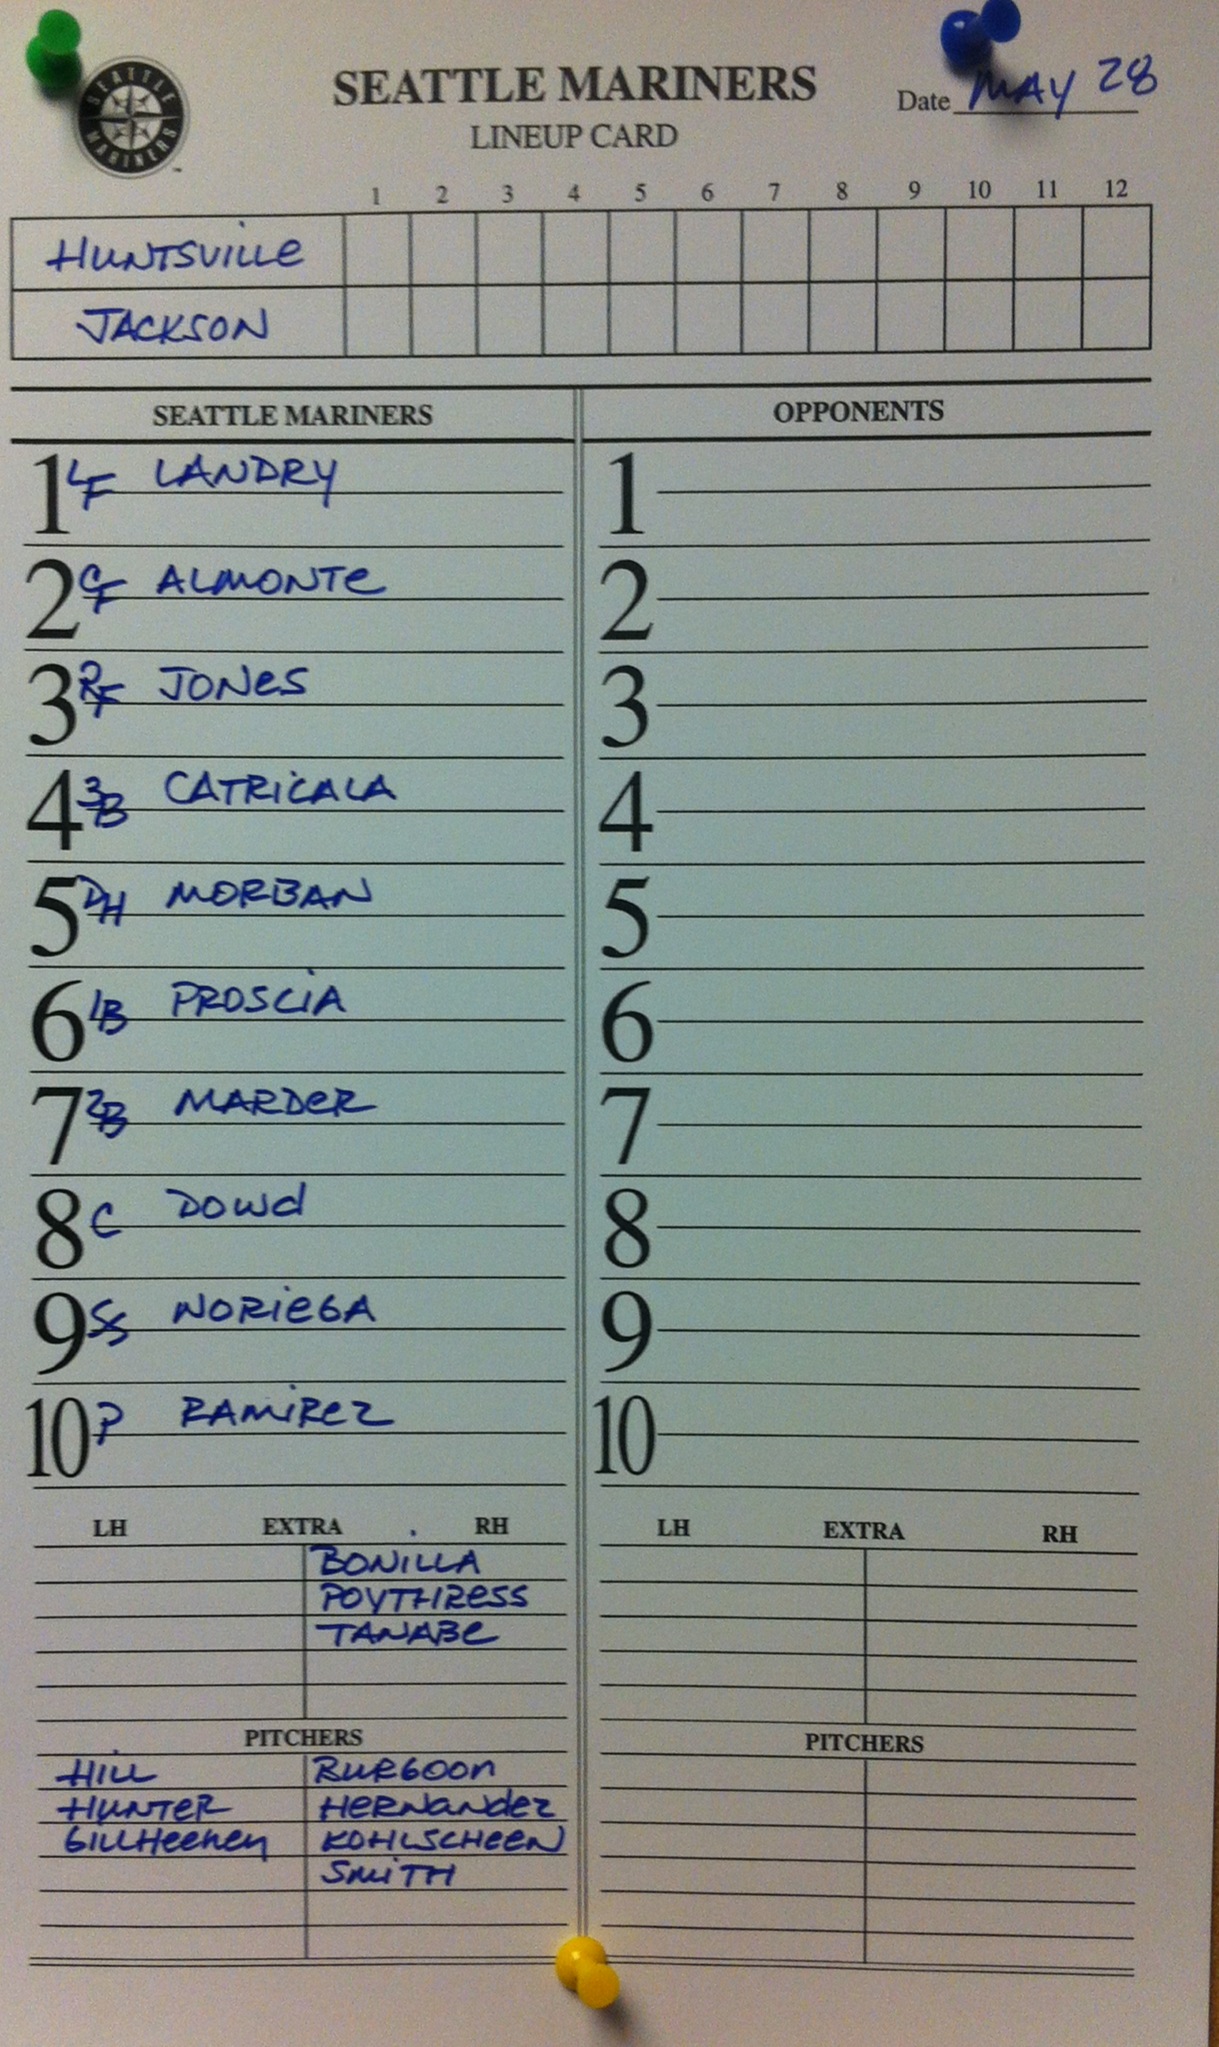 SEATTLE MARINERS
SEATTLE MARINERS
LINEUP CARD
Date MAY 28
1 2 3 4 5 6 7 8 9 10 11 12
HUNTSVILLE
JACKSON
SEATTLE MARINERS
1 LF LANDRY
2 CF ALMONTE
3 RF JONES
4 3B CATRICALA
5 DH MORBAN
6 1B PROSCIA
7 2B MARDER
8 C DOWD
9 SS NORIEGA
10 P RAMIREZ
LH EXTRA RH
BONILLA
POYTHRESS
TANABE
PITCHERS
HILL BURGOON
HUNTER HERNANDEZ
GILLHEENEY KOHLSCHEEN
SMITH
OPPONENTS
1
2
3
4
5
6
7
8
9
10
LH EXTRA RH
PITCHERS